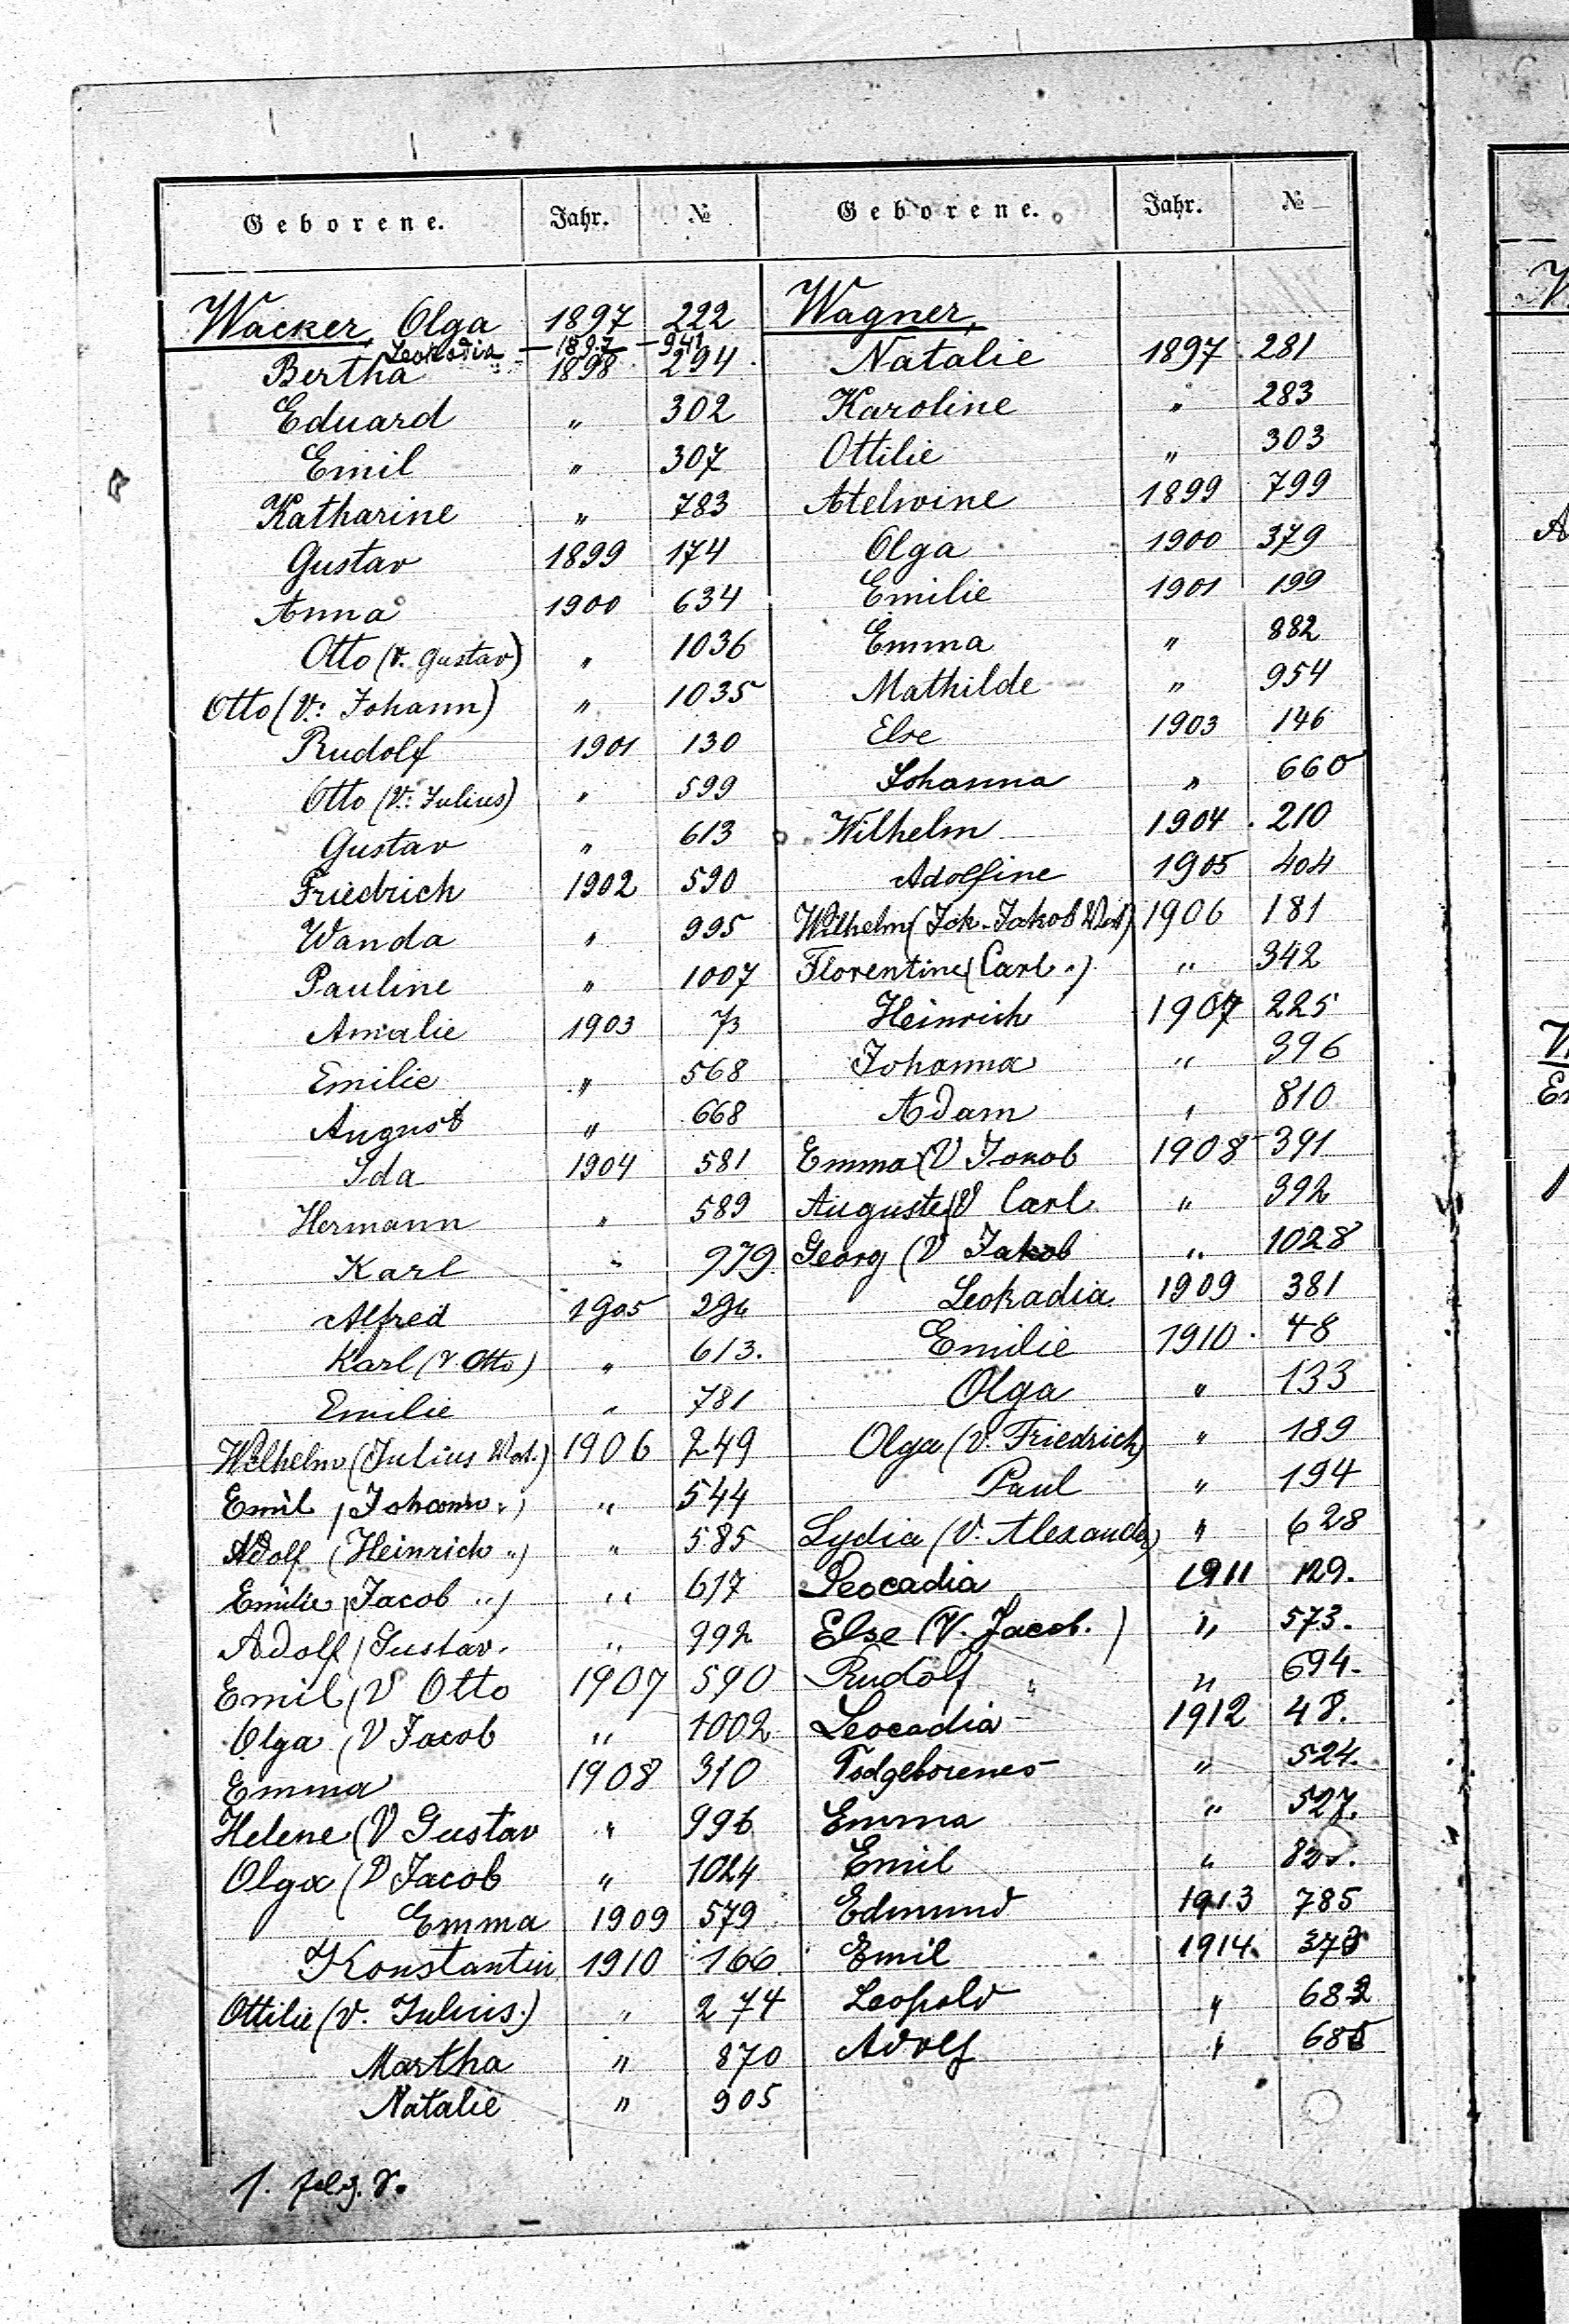 Geborene. Jahr. № Geborene. Jahr. №
Wacker, Olga 1897 222
Leokadia 1897 941
Bertha 1898 294
Eduard " 302
Emil " 307
Katharine " 783
Gustav 1899 174
Anna 1900 634
Otto (V. Gustav) " 1036
Otto (V: Johann) " 1035
Rudolf 1901 130
Otto (V: Julius) " 599
Gustav " 613
Friedrich 1902 590
Wanda " 995
Pauline " 1007
Amalie 1903 73
Emilie " 568
August " 668
Ida 1904 581
Hermann " 589
Karl " 979
Alfred 1905 294
Karl (V. Otto) " 613.
Emilie " 781
Wilhelm (Julius Vat.) 1906 249
Emil (Johann ") " 544
Adolf (Heinrich ") " 585
Emilie (Jacob ") " 617
Adolf (Gustav. " 992
Emil (V Otto 1907 590
Olga (V Jacob " 1002
Emma 1908 310
Helene (V Gustav " 996
Olga (V Jacob " 1024
Emma 1909 579
Konstantin 1910 166
Ottilie (V. Julius.) " 274
Martha " 870
Natalie " 905
Wagner,
Natalie 1897 281
Karoline " 283
Ottilie " 303
Atelwine 1899 799
Olga 1900 379
Emilie 1901 199
Emma " 882
Mathilde " 954
Else 1903 146
Johanna " 660
Wilhelm 1904 210
Adolfine 1905 404
Wilhelm (Joh. Jakob Vat) 1906 181
Florentine (Carl ") " 342
Heinrich 1907 225
Johanna " 396
Adam " 810
Emma (V Jakob 1908 391
Auguste (V Carl " 392
Georg (V Jakob " 1028
Leokadia 1909 381
Emilie 1910 48
Olga " 133
Olga (V. Friedrich) " 189
Paul " 194
Lydia (V. Alexander) " 628
Leocadia 1911 129.
Else (V. Jacob.) " 573.
Rudolf " " 694.
Leocadia 1912 48.
Todgeborenes " 524.
Emma " 527.
Emil "
Edmund 1913 785
Emil 1914
Leopold " 682
Adolf " 685